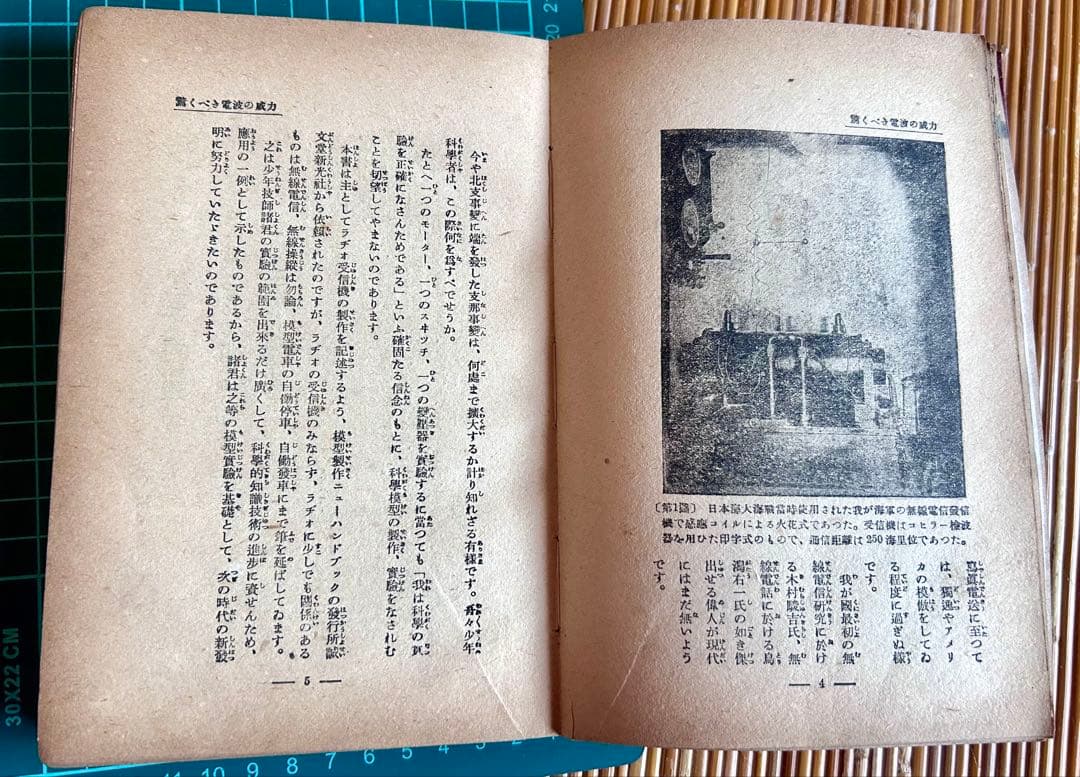 驚くべき電波の威力
〔第1圖〕 日本海大海戰當時使用された我が海軍の無線電信發信
機で感應コイルによる火花式であつた。受信機はコヒラー檢波
器を用ひた印字式のもので、通信距離は250海里位であつた。
寫眞電送に至つて
は、獨逸やアメリ
カの模倣をしてゐ
る程度に過ぎぬ樣
です。
我が國最初の無
線電信研究に於け
る木村駿吉氏、無
線電話に於ける鳥
潟右一氏の如き傑
出せる偉人が現代
にはまだ無いよう
です。
4
驚くべき電波の威力
今や北支事變に端を發した支那事變は、何處まで擴大するか計り知れざる有樣です。我々少年
科學者は、この際何を爲すべでせうか。
たとへ一つのモーター、一つのスヰッチ、一つの變壓器を實驗するに當つても「我は科學の眞
驗を正確になさんためである」といふ確固たる信念のもとに、科學模型の製作、實驗をなされむ
ことを切望してやまないのであります。
本書は主としてラヂオ受信機の製作を記述するよう、模型製作ニューハンドブックの發行所誠
文堂新光社から依賴されたのですが、ラヂオの受信機のみならず、ラヂオに少しでも關係のある
ものは無線電信、無線操縱は勿論、模型電車の自働停車、自働發車にまで筆を延ばしてゐます。
之は少年技師諸君の實驗の範圍を出來るだけ廣くして、科學的知識技術の進步に資せんため、
應用の一例として示したものであるから、諸君は之等の模型實驗を基礎として、次の時代の新發
明に努力していたゞきたいのであります。
5
30X22 CM